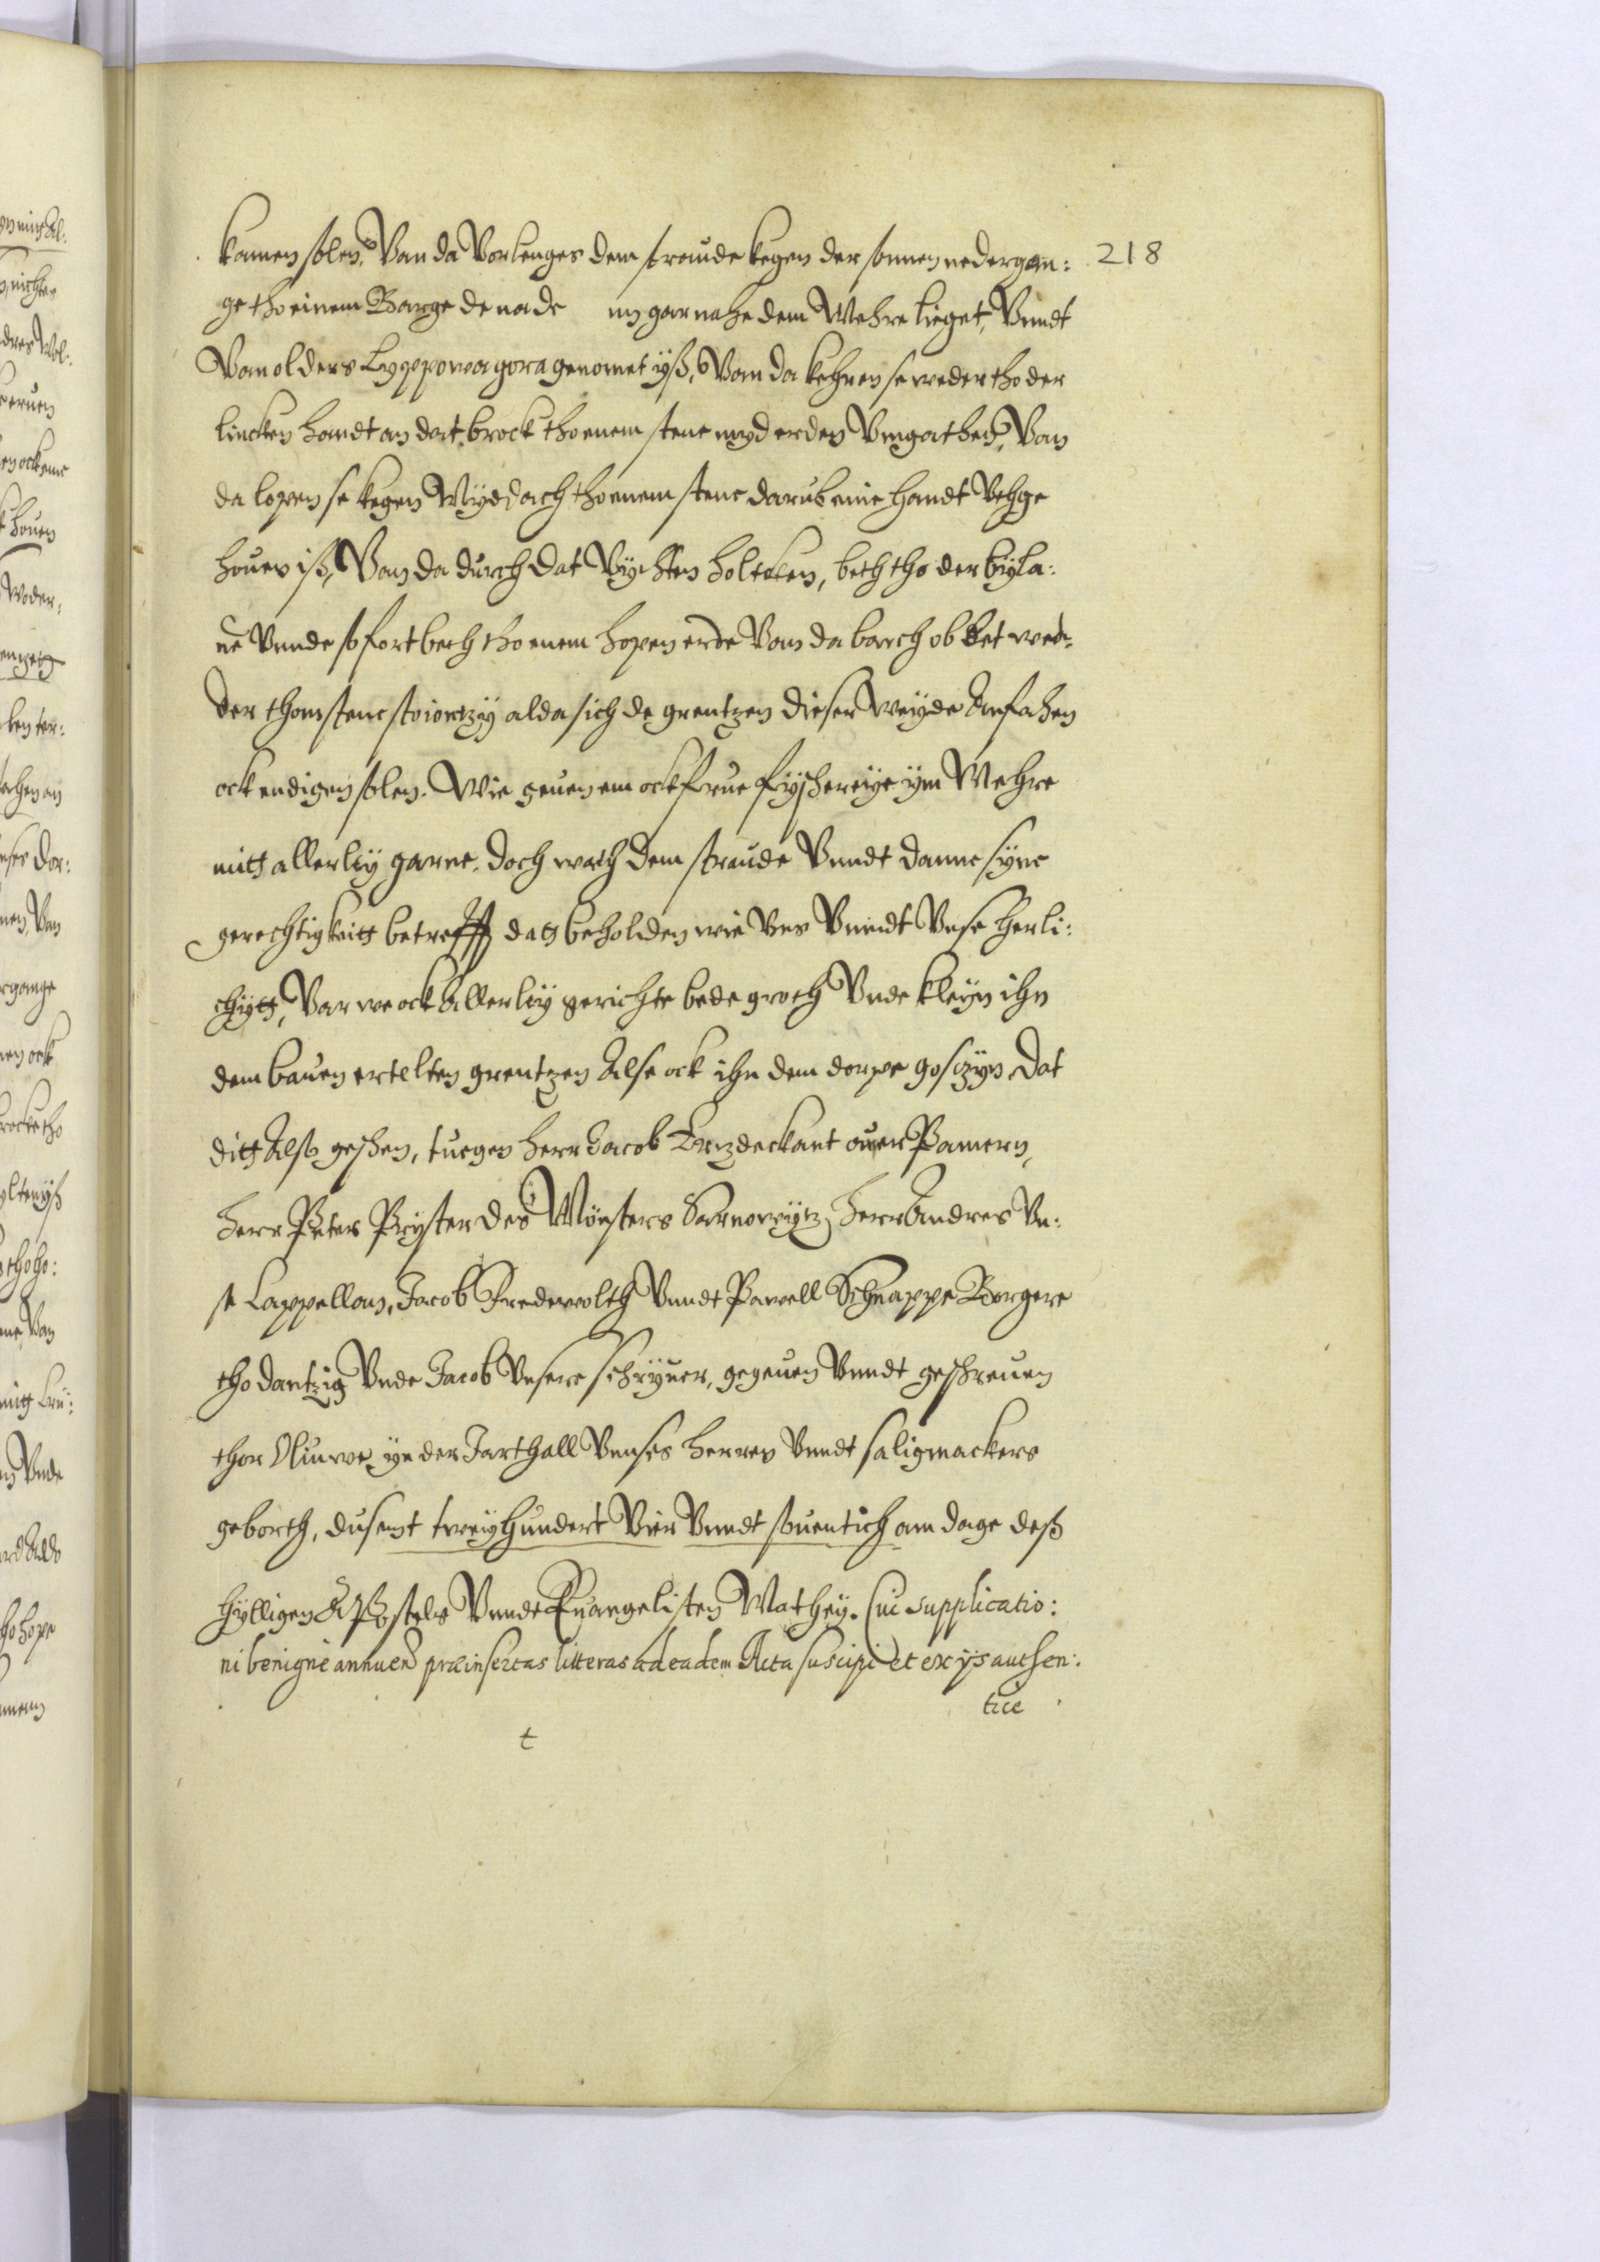 kamen solen, Van da Vorlenges dem strande kegen der sonnen nedergan: 218
ge tho einem Barge de nade un gar nahe dem Mehre lieget, Vnndt
Van olders Lyppowa gora genomet yß, Van da kehren se weder tho der
lincken handt an dat brock tho enem stene myd erden Vmgathen, Van
da lopen se kegen Myddach tho enem stene darub eine handt Vthge
houen iß, Van da durch dat Vychten holtken, beth tho der byla:
ne Vnnde so fort beth tho enem hopen erde Van da barch ob bet wed:
der thom stene stoiontzy alda sich de grentzen dieser weyde Anfahen
ock endigen solen. Wie geuen em ock frue fyschereye ym Mehre
mitt allerley garne, doch wath dem strande Vnndt danne syne
gerechtigkeitt betrefft datt beholden wie Vns Vnndt Vnse herli:
chytt, Var we ock Allerley gerichte bede groth Vnde kleyn ihn
dem bauen ertelten grentzen Alse ock ihn dem dorpe gosczyn, Dat
ditt Alst geschen, tuegen herr Jacob Ertzdeckant ouer Pamern,
herr Peter Pryster des Mönsters Sarnowytz, herr Andres Vn:
se Cappellan, Jacob Fredewolth Vnndt Pawell Schnappe Borgere
tho dantzig Vnde Jacob Vnsere schryuer, gegeuen Vnndt geschreuen
thor Oliuwe yn der Jarthall Vnses herren Vnndt saligmackers
geborth, dusent tweyhundert Vier Vnndt souentich am dage deß
hylligen Apostels Vnnde Euangelisten Mathey. Cuic supplicatio:
ni benigne annuen præinsertas litteras ad eadem Acta suscipi et ex ys authen:
tice
t